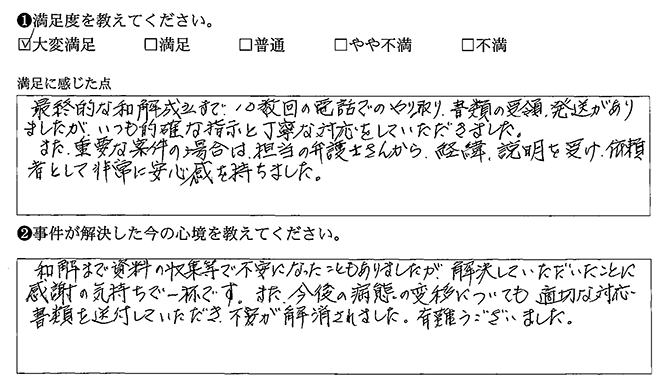 ❶満足度を教えてください。
☑大変満足 □満足 □普通 □やや不満 □不満
満足に感じた点
最終的な和解成立まで、10数回の電話でのやり取り、書類の受領、発送があり
ましたが、いつも的確な指示と丁寧な対応をしていただきました。
また、重要な案件の場合は、担当の弁護士さんから、経緯、説明を受け、依頼
者として非常に安心感を持ちました。
❷事件が解決した今の心境を教えてください。
和解まで資料の収集等で不安になったこともありましたが、解決していただいたことに
感謝の気持ちで一杯です。また、今後の病態の変移についても、適切な対応、
書類を送付していただき、不安が解消されました。有難うございました。